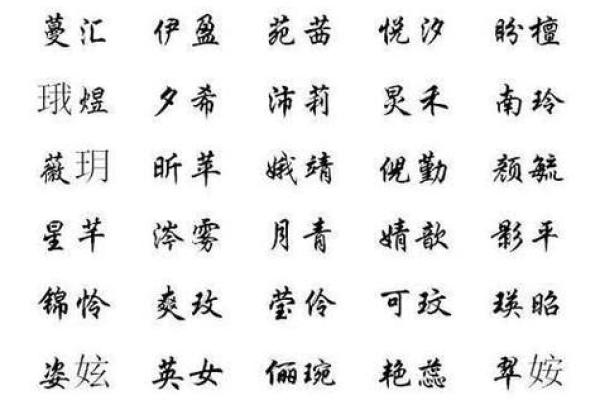 蔓汇 伊盈 苑茜 悦汐 盼檀
珴煜 夕希 沛莉 炅禾 南玲
薇玥 昕苹 娥靖 倪勤 颜毓
星芊 涔雾 月青 婧歆 影平
锦怜 爽玫 莹伶 可玟 瑛昭
姿妶 英女 俪琬 艳蕊 翠姲